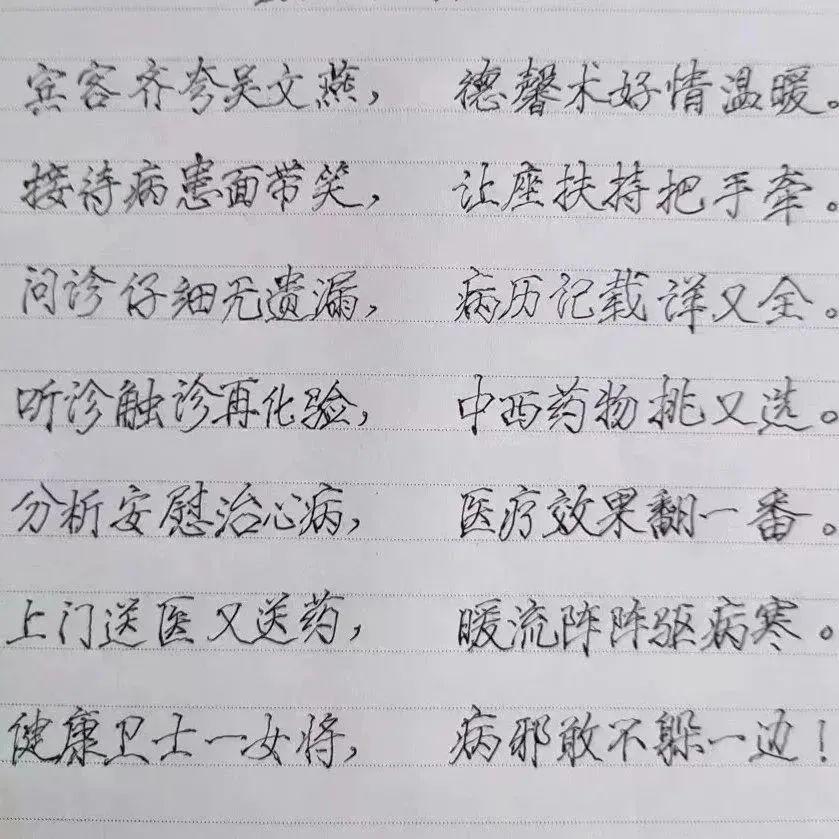 宾客齐夸吴文燕， 德馨术好情温暖。
接待病患面带笑， 让座扶持把手牵。
问诊仔细无遗漏， 病历记载详又全。
听诊触诊再化验， 中西药物挑又选。
分析安慰治心病， 医疗效果翻一番。
上门送医又送药， 暖流阵阵驱病寒。
健康卫士一女将， 病邪敢不躲一边！